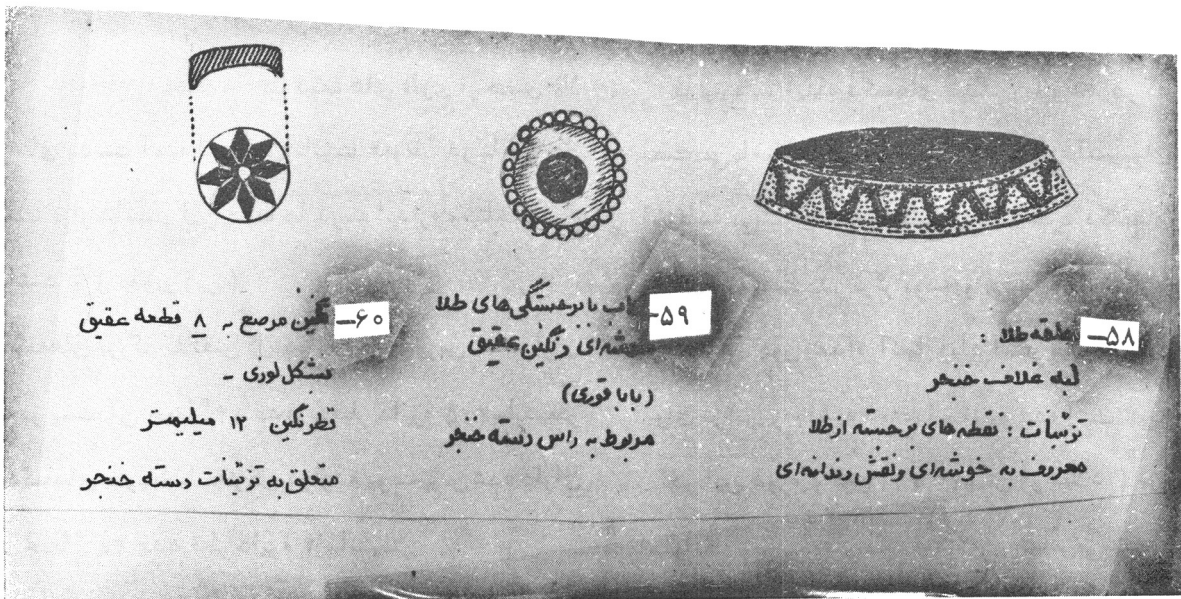 ۵۸- حلقه طلا :
لبه غلاف خنجر
تزئینات : نقطه های برجسته از طلا
معروف به خوشه‌ای ونقش دندانه ای
۵۹- با برجستگی های طلا
خوشه‌ای و نگین عقیق
(بابا قوری)
مربوط به راس دسته خنجر
۶۰- نگین مرصع به ۸ قطعه عقیق
بشکل لوزی -
قطر نگین ۱۲ میلیمتر
متعلق به تزئینات دسته خنجر